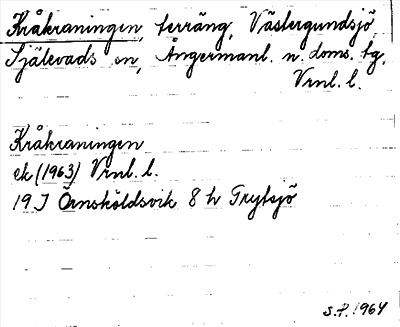 Kråkraningen, terräng, Västergundsjö,
Själevads sn, Ångermanl. n. doms. tg,
Vrnl. l.
Kråkraningen
ek (1963) Vrnl. l.
19 J Örnsköldsvik 8 h Trytsjö
S.P. 1964